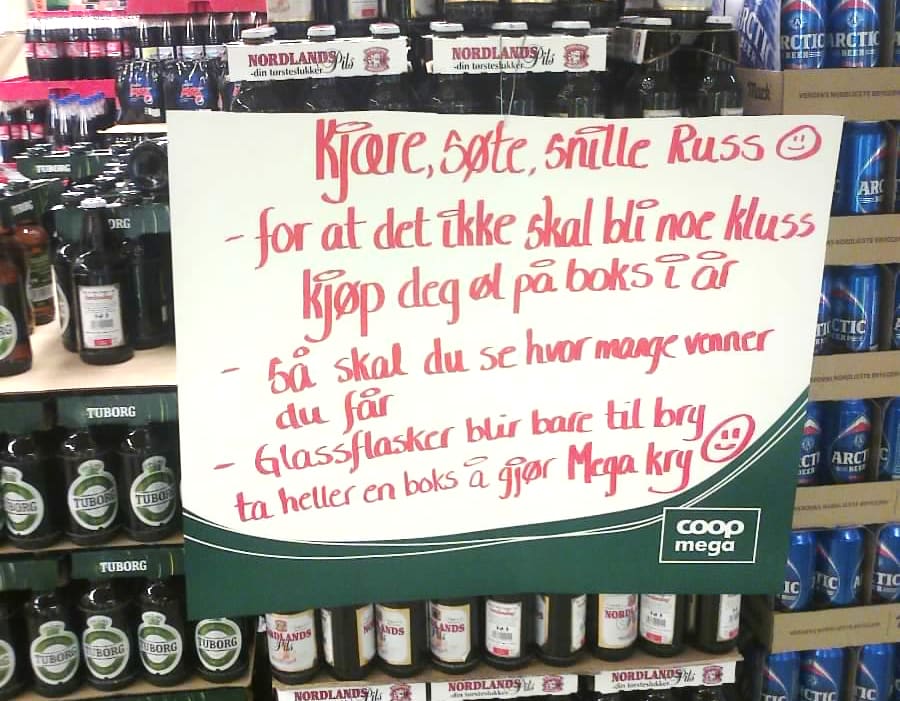 NORDLANDS Pils
-din tørsteslukker
NORDLANDS Pils
-din tørsteslukker
ARCTIC
BEER
ARCTIC
BEER
Mack
VERDENS NORDLIGSTE BRYGGERI
Kjære, søte, snille Russ
- for at det ikke skal bli noe kluss
kjøp deg øl på boks i år
- Så skal du se hvor mange venner
du får
- Glassflasker blir bare til bry
ta heller en boks å gjør Mega kry
coop
mega
TUBORG
TUBORG
TUBORG
TUBORG
TUBORG
TUBORG
TUBORG
TUBORG
TUBORG
TUBORG
NORDLANDS Pils
NORDLANDS Pils
-din tørsteslukker
NORDLANDS Pils
-din tørsteslukker